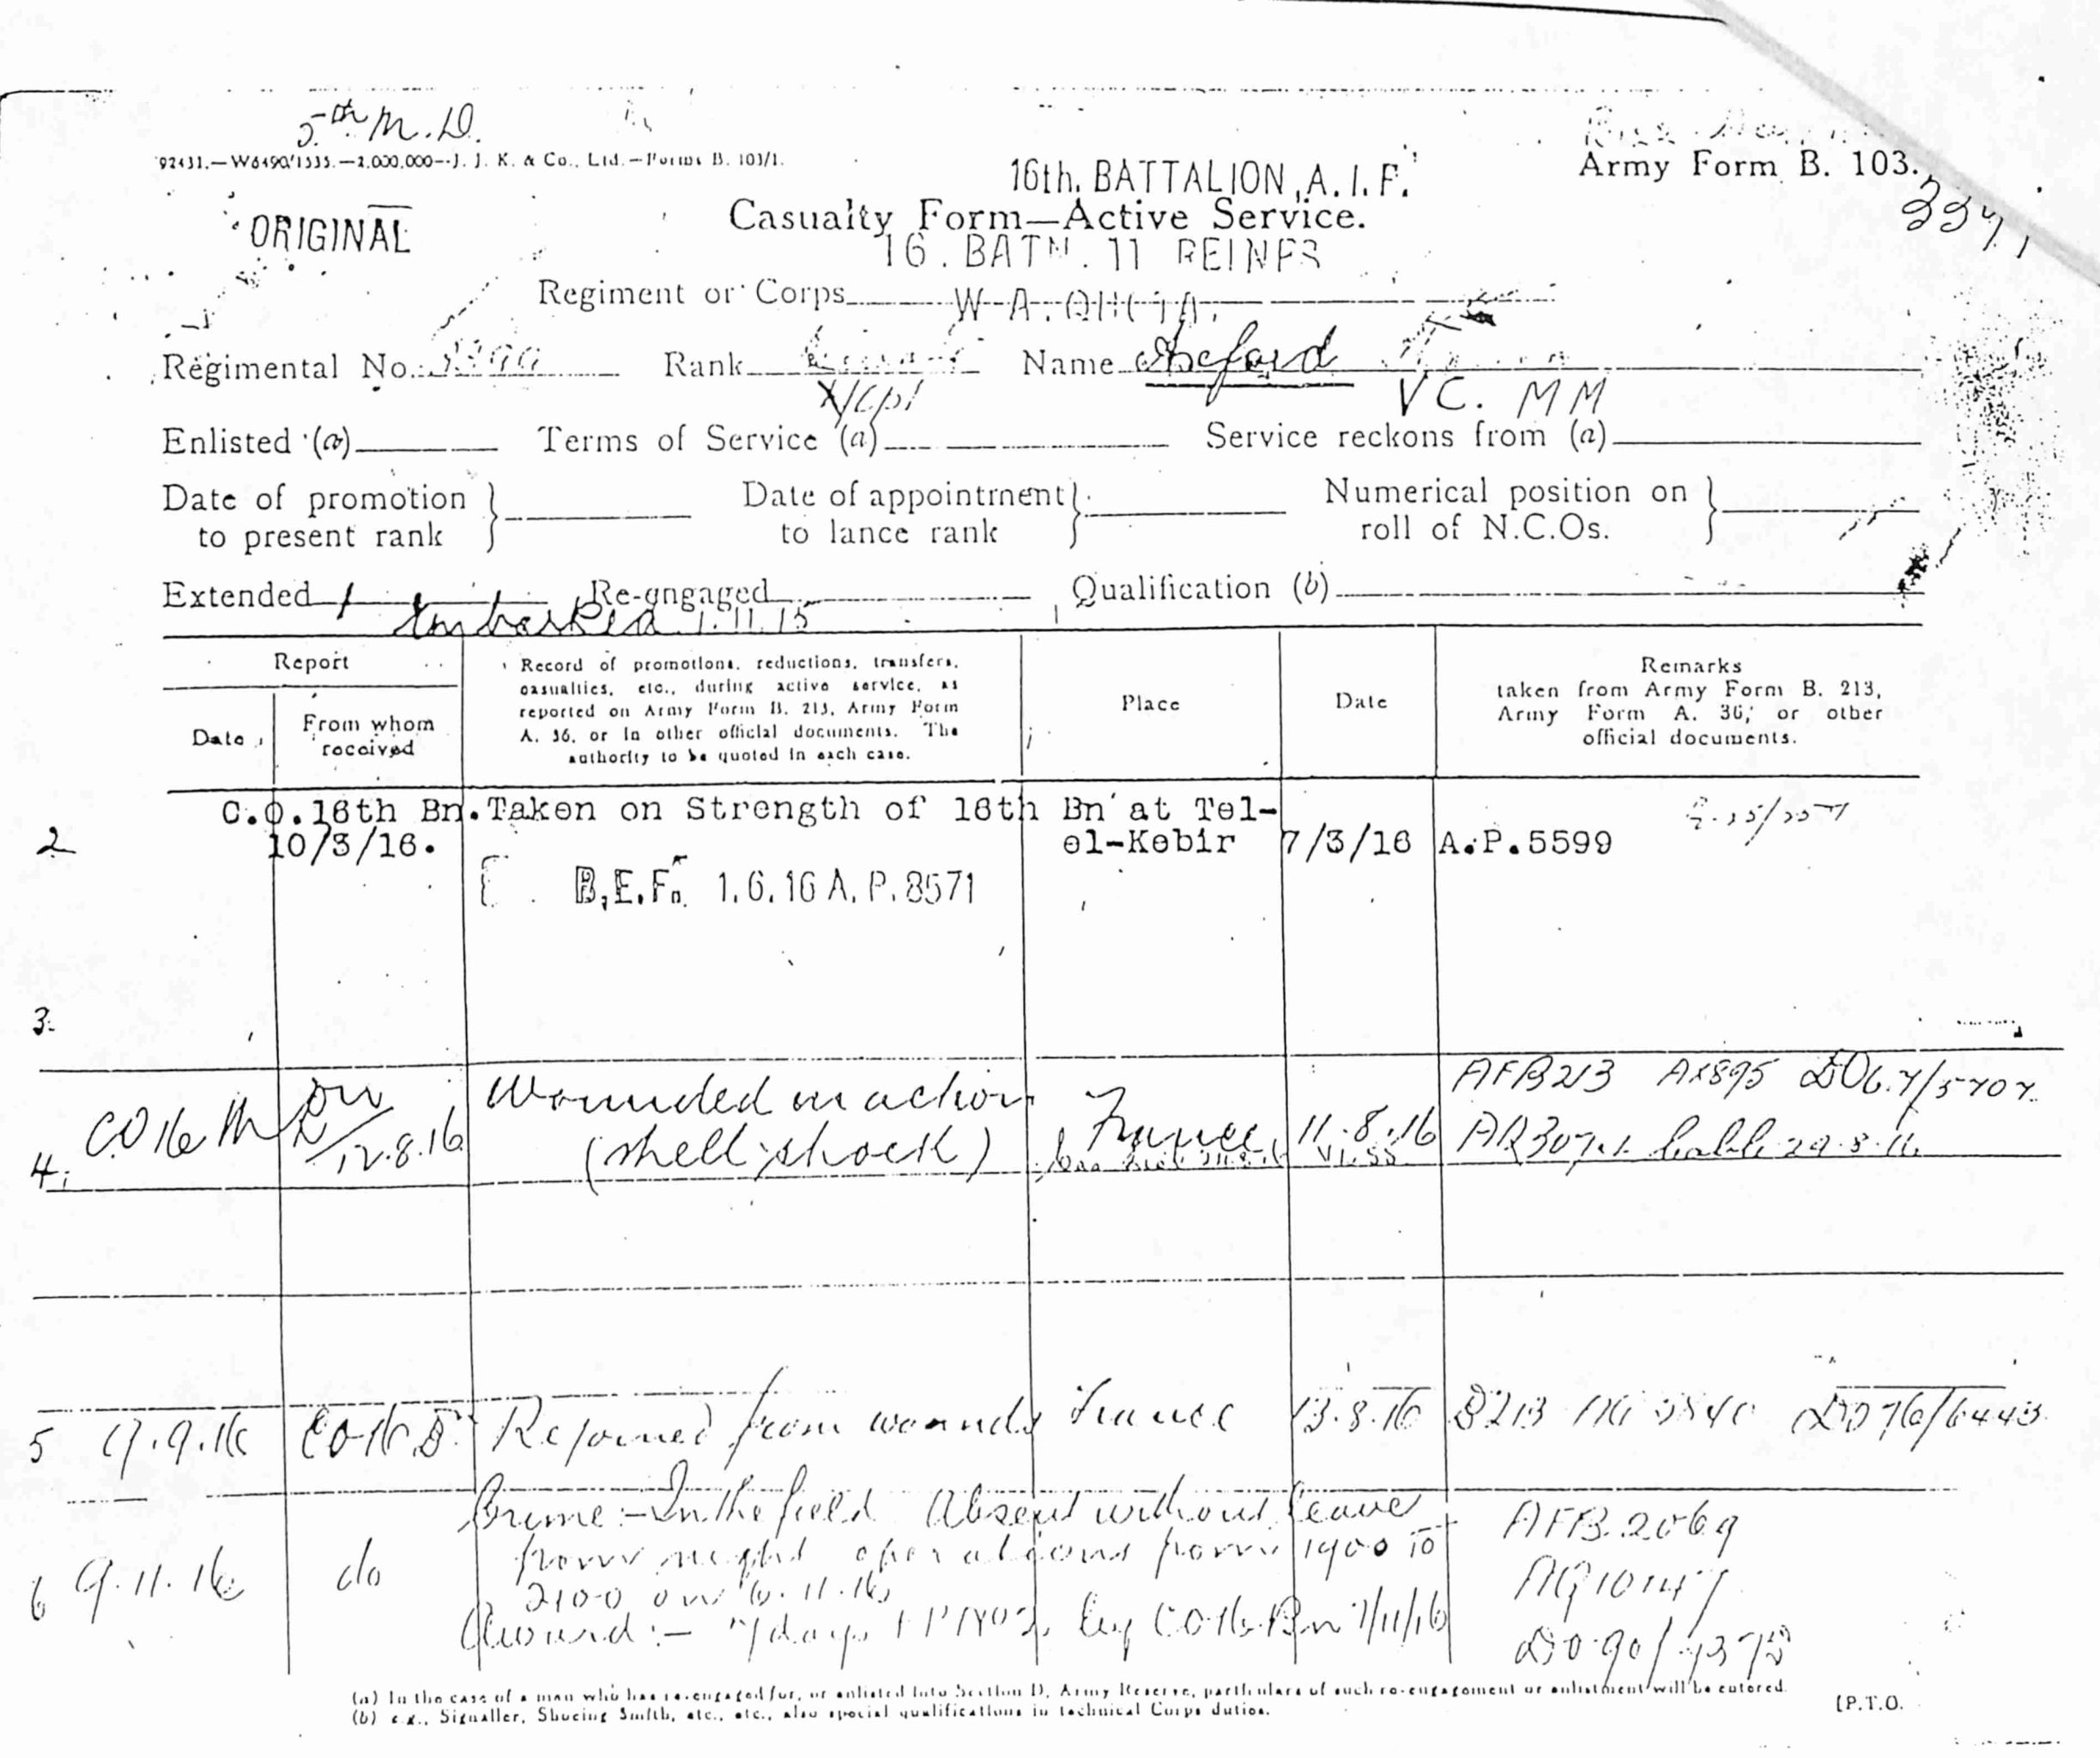 5th M.D.
92431.—W6490/1535.—2,000,000—J. J. K. & Co., Ltd.—Forms B. 103/1.
Army Form B. 103.
16th. BATTALION, A. I. F.
ORIGINAL
Casualty Form—Active Service.
16. BATN. 11 REINFS
Regiment or Corps
Regimental No. Rank Name Axford
VC. MM
Enlisted (a) Terms of Service (a) Service reckons from (a)
Date of promotion to present rank } Date of appointment to lance rank } Numerical position on roll of N.C.Os. }
Extended Re-engaged Qualification (b)
Embarked 1.11.15
Report
Date
From whom received
Record of promotions, reductions, transfers,
casualties, etc., during active service, as
reported on Army Form B. 213, Army Form
A. 36, or in other official documents. The
authority to be quoted in each case.
Place
Date
Remarks
taken from Army Form B. 213,
Army Form A. 36, or other
official documents.
C.O.16th Bn. Taken on Strength of 16th Bn at Tel-
2 10/3/16. el-Kebir 7/3/16 A.P.5599
B.E.F. 1.6.16 A.P.8571
3.
4. CO 16th Bn 12.8.16 Wounded in action France 11.8.16 AFB213
(shell shock)
5 9.9.16 CO 16 B Rejoined from wounds France 13.8.16 B213
6 9.11.16 do Crime :- In the field Absent without leave
from night operations from 1900 to
2100 on 6.11.16
Award :- 7 days FPNo2. by CO 16 Bn 7/11/16
AFB 2069
(a) In the case of a man who has re-engaged for, or enlisted into Section D, Army Reserve, particulars of such re-engagement or enlistment will be entered.
(b) e.g., Signaller, Shoeing Smith, etc., etc., also special qualifications in technical Corps duties.
[P.T.O.